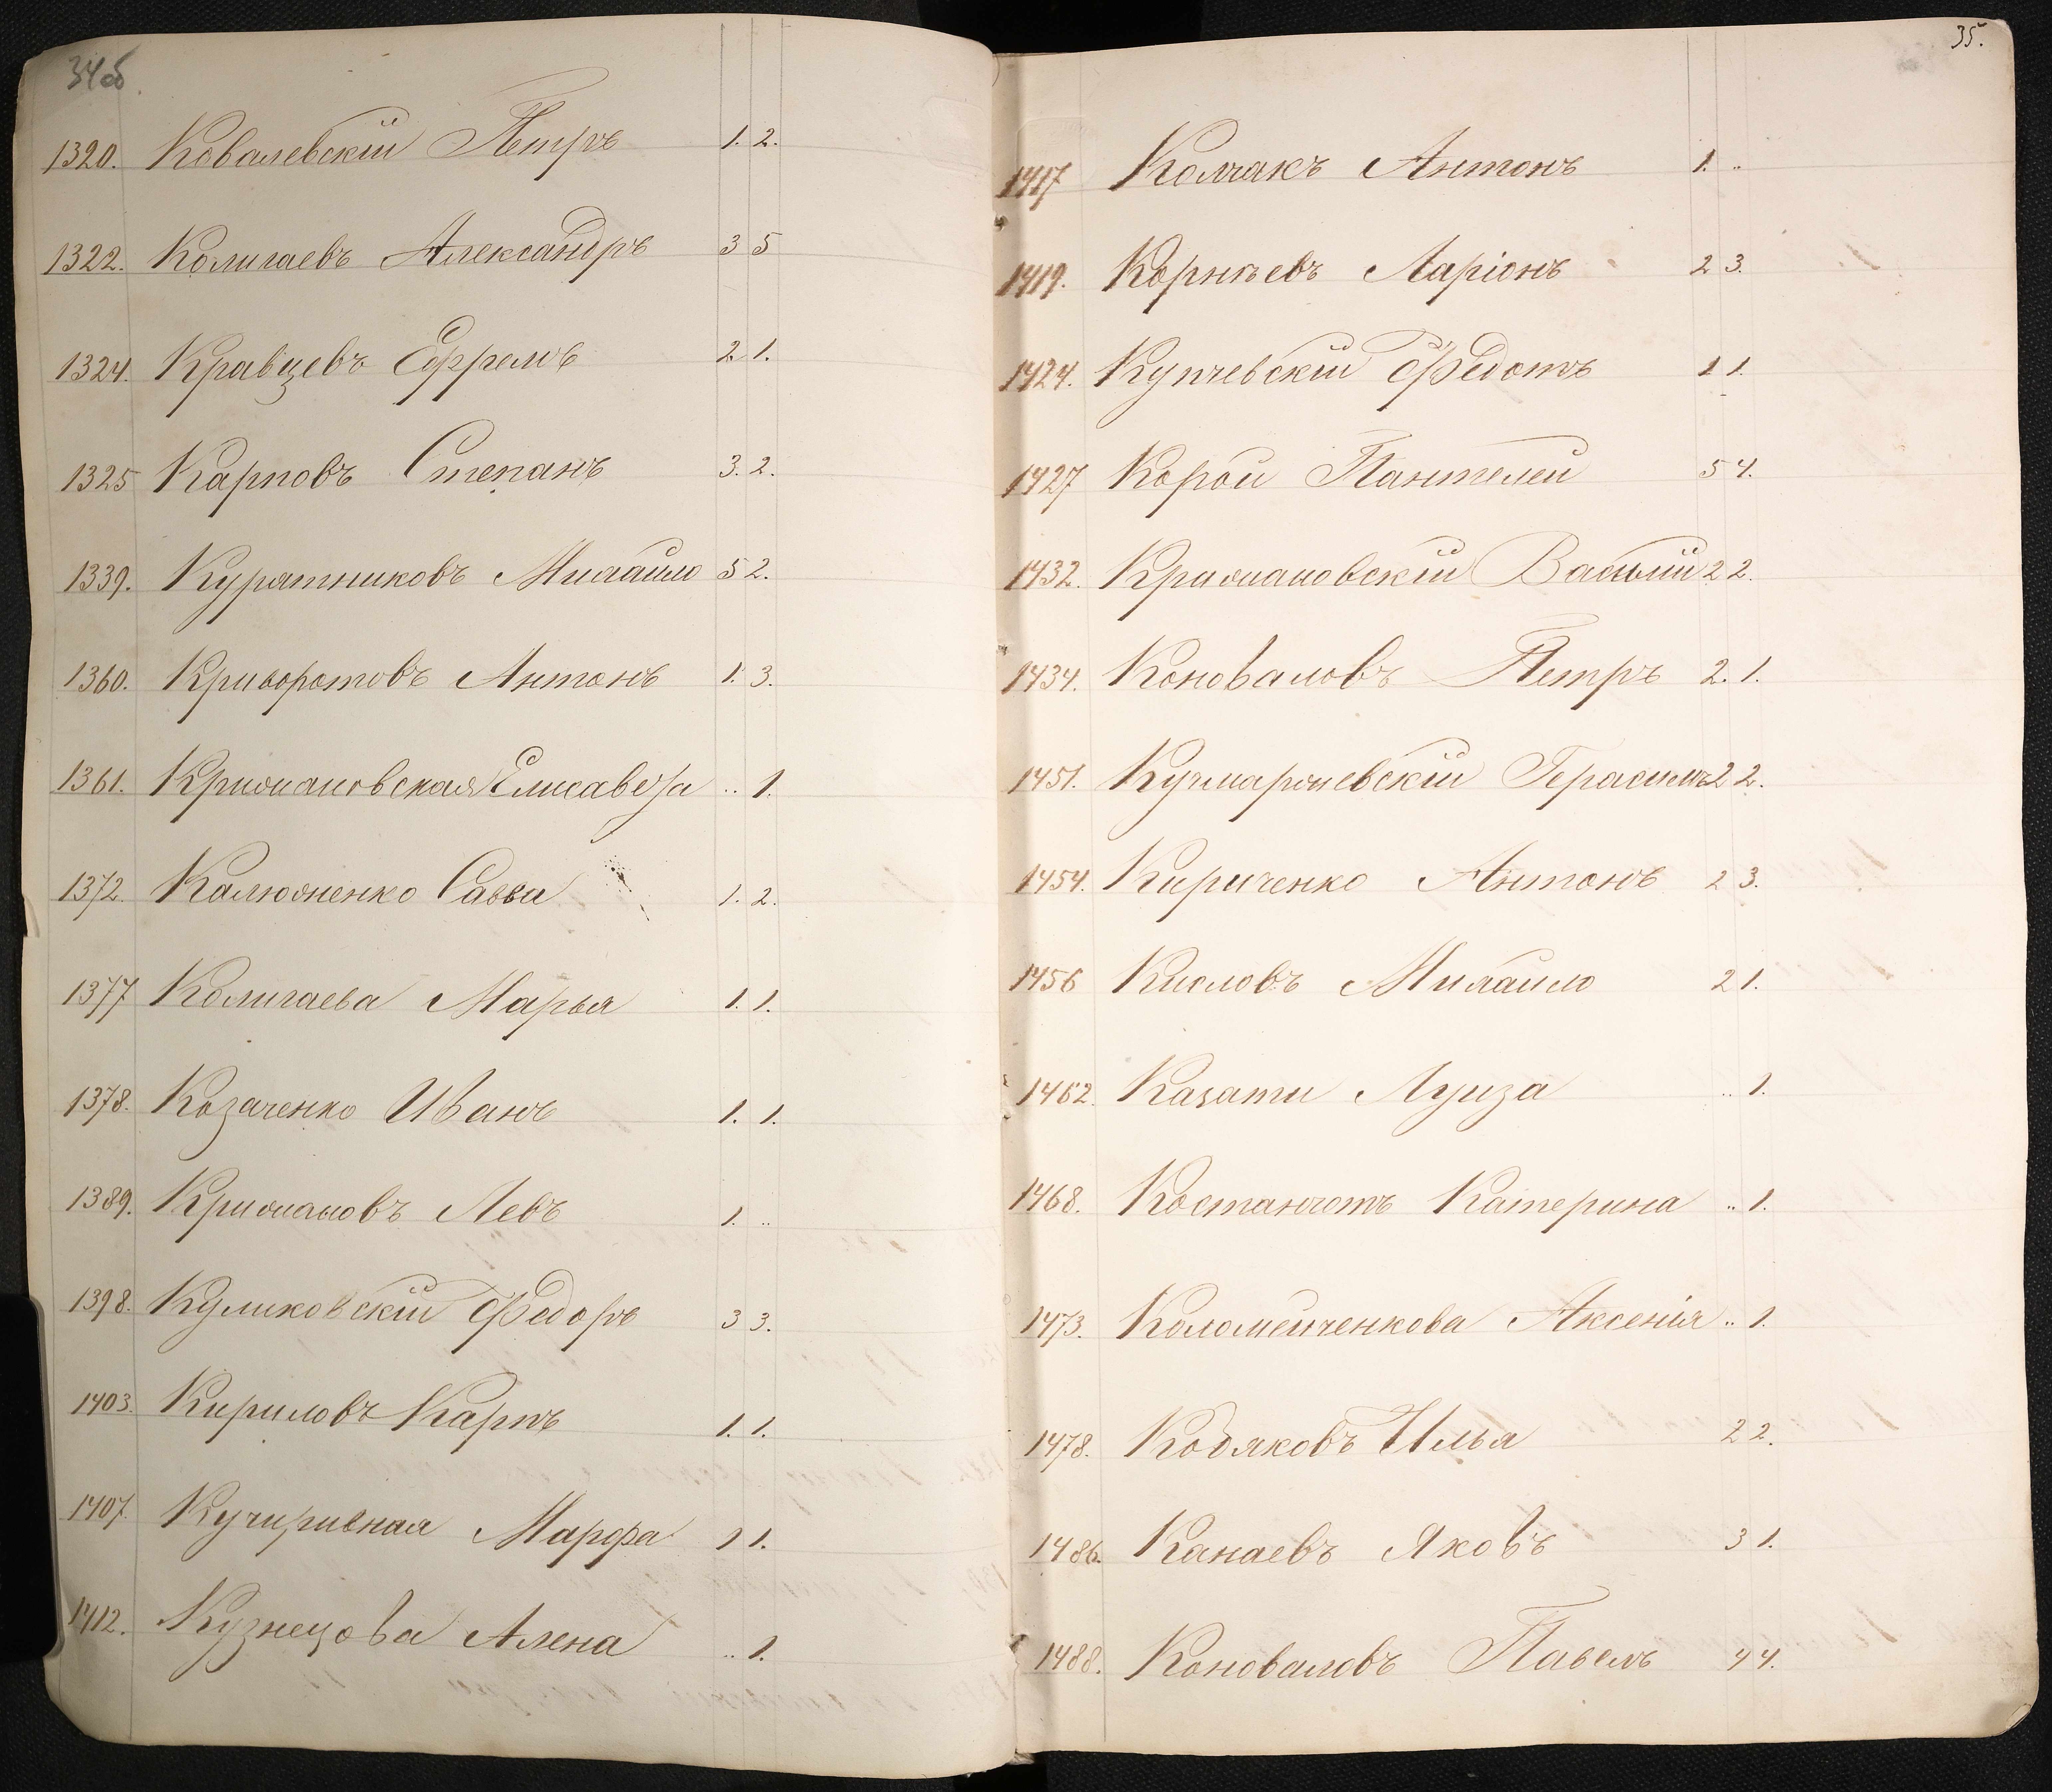 34об
1320. Ковалевскій Петръ 1. 2.
1322. Колигаевъ Александръ 3 5
1324. Кравцевъ Ефремъ 2. 1.
1325 Карповъ Степанъ 3. 2.
1339. Курятниковъ Михайло 5 2.
1360. Криворотовъ Антонъ 1. 3.
1361. Крижановская Елисавета .. 1.
1372. Калюжненко Савва 1. 2.
1377 Колигаева Марья 1. 1.
1378. Козаченко Иванъ 1. 1.
1389. Крижановъ Левъ 1. ..
1398. Куликовскій Федоръ 3 3.
1403. Кириловъ Карпъ 1. 1.
1407. Кучеривная Марфа 1 1.
1412. Кузнецова Алена .. 1.
35.
1417 Колчакъ Антонъ 1. ..
1419. Корнѣевъ Ларіонъ 2 3.
1424. Купчевскій Федотъ 1 1.
1427 Корой Пантелей 5 4.
1432. Крижановскій Василій 2 2.
1434. Коноваловъ Петръ 2. 1.
1451. Герасимъ 2 2.
1454. Кириченко Антонъ 2 3.
1456 Кисловъ Михайло 2 1.
1462. Казати Луиза .. 1.
1468. Катерина .. 1.
1473. Коломейченкова Аксенія .. 1.
1478. Кобяковъ Илья 2 2.
1486. Канаевъ Яковъ 3 1.
1488. Коноваловъ Павелъ 4 4.